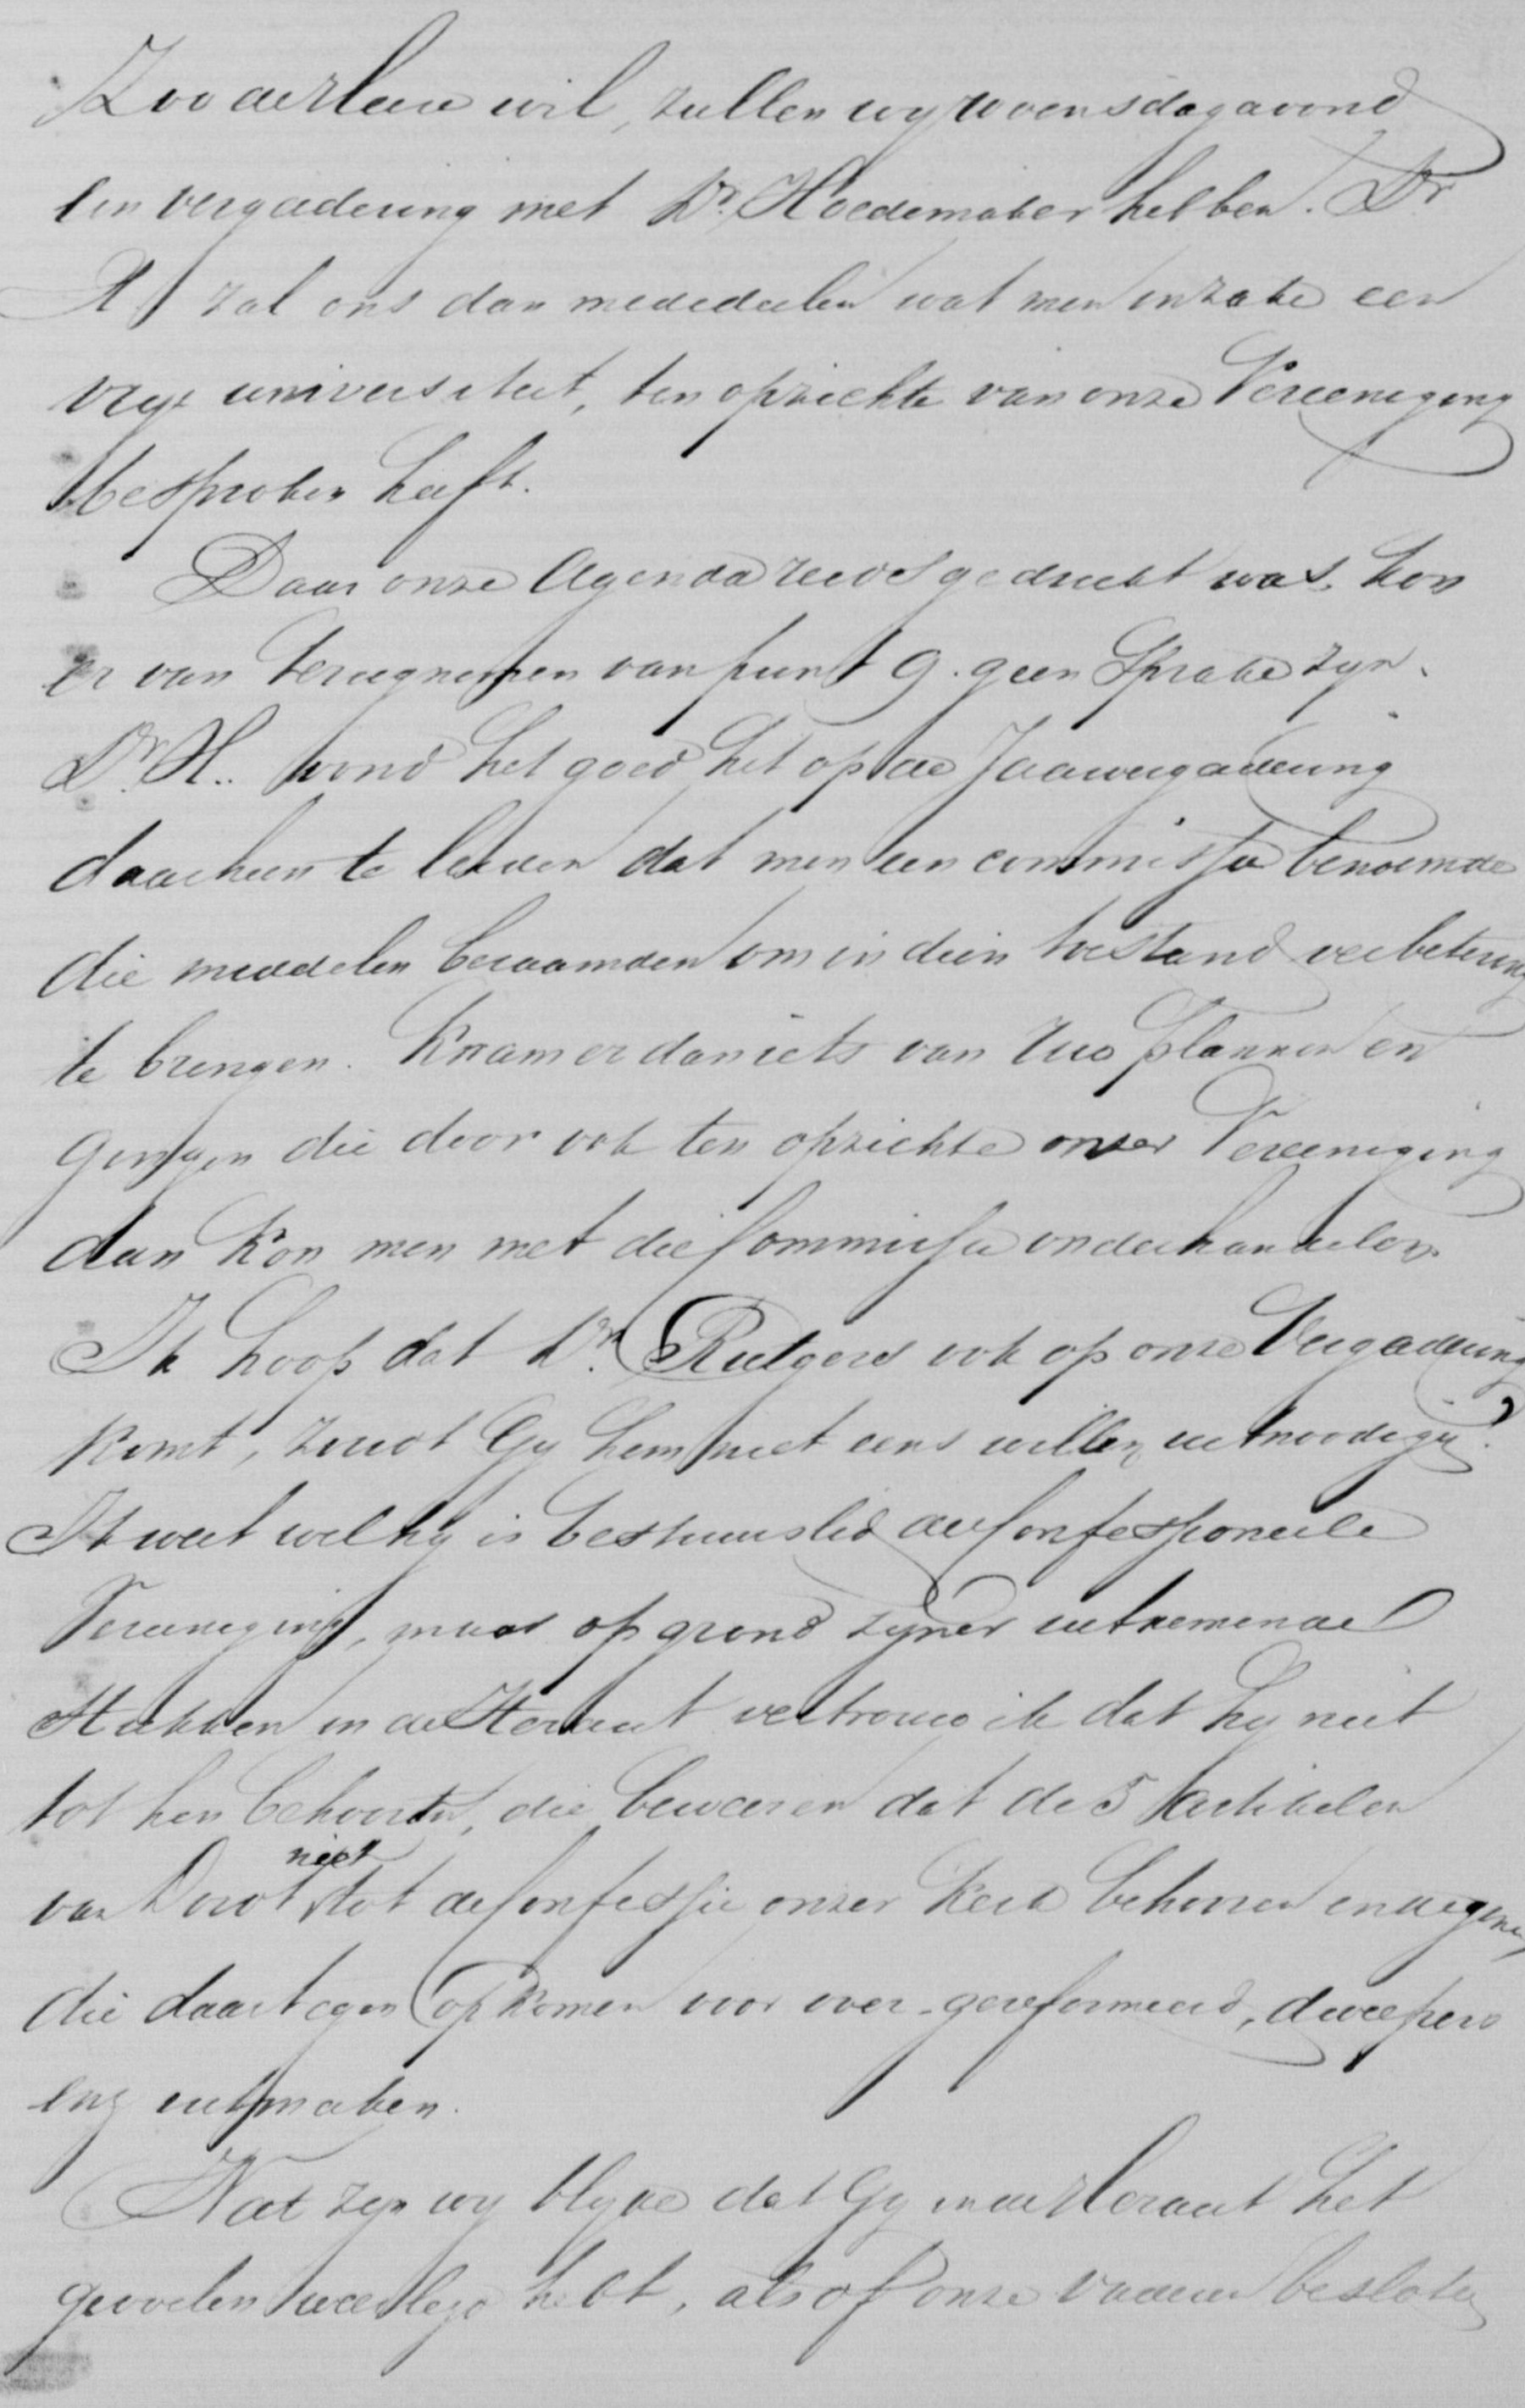 Zoo de Heere wil, zullen wy woensdagavond
een vergadering met Dr. Hoedemaker hebben. Dr
H zal ons dan mededeelen wat men inzake een
vrije universiteit, ten opzichte van onze Vereeniging
besproken heeft.
Daar onze Agenda reeds gedrukt was kon
er van terugnemen van punt 9. geen Sprake zyn.
Dr. H.. vond het goed het op de Jaarvergadering
daarheen te leiden dat men een commissie benoemde
die middelen beraamden om in dien toestand verbetering
te brengen. Kwam er dan iets van Uw plannen en
gingen die door ook ten opzichte onzer Vereeniging
dan kon men met die Commissie onderhandelen.
Ik hoop dat Dr. Rutgers ook op onze Vergadering
komt, zoudt Gy hem niet eens willen uitnoodigen?
Ik weet wel hy is bestuurslid der Confessioneele
Vereeniging, maar op grond zyner uitnemende
Stukken in de Heraut vertrouw ik dat hy niet
tot hen behoorde, die beweeren dat de 5 Artikelen
van Dordt niet tot de Confessie onzer Kerk behooren en degenen
die daartegen opkomen voor over-gereformeerd, dweepers
enz uitmaken.
Wat zyn wy blyde dat Gy in de Heraut het
gevoelen weerlegd hebt, alsof onze vaderen besloten